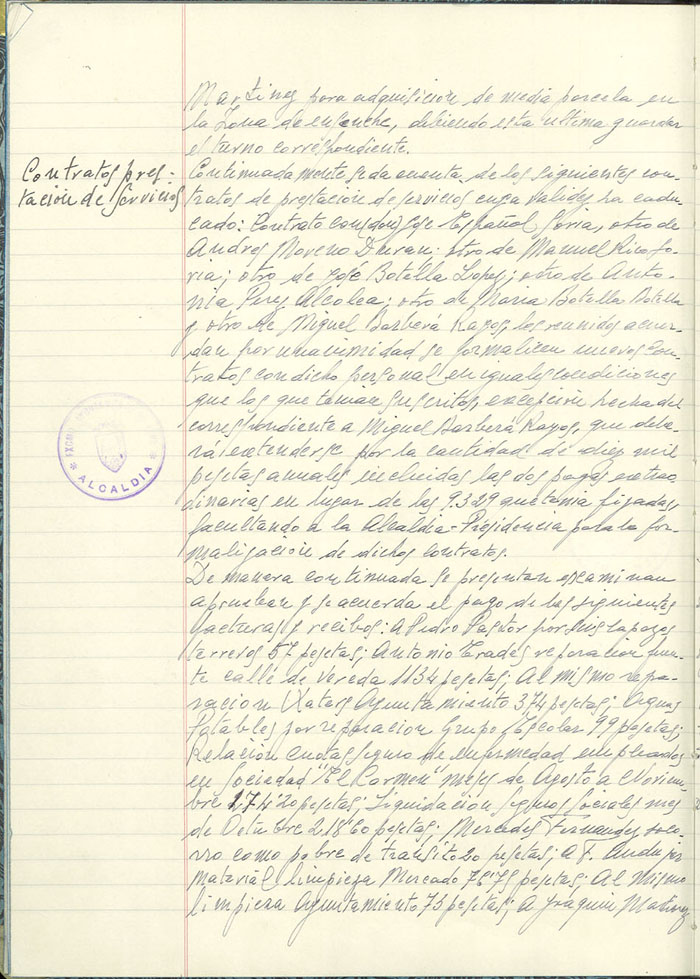 Martinez para adquisicion de media parcela en
la Zona de ensanche, debiendo esta ultima guardar
el turno correspondiente.
Contratos pres-
tacion de servicios
Continuadamente se da cuenta de los siguientes con-
tratos de prestacion de servicios cuya validez ha cadu-
cado: Contrato con (don) Jose Español Soria, otro de
Andres Moreno Duran; otro de Manuel Rico
ria; otro de José Botella Lopez; otro de Anto-
nia Perez Alcolea; otro de Maria Botella Botella
y otro de Miguel Barberá Rayos, los reunidos acuer-
dan por unanimidad se formalicen nuevos con-
tratos con dicho personal en iguales condiciones
que los que toman suscritos, excepción hecha del
correspondiente a Miguel Barberá Rayos, que debe-
rá extenderse por la cantidad de diez mil
pesetas anuales incluidas las dos pagas extraor-
dinarias en lugar de las 9.329 que tenia fijadas,
facultando a la Alcaldia-Presidencia para la for-
malizacion de dichos contratos.
De manera continuada se presentan examinan
aprueban y se acuerda el pago de las siguientes
facturas y recibos: A Pedro Pastor por
terreros 57 pesetas; Antonio reparacion fuen-
te calle de Vereda 1134 pesetas; Al mismo repa-
racion Ayuntamiento 374 pesetas; Aguas
Potables por reparacion Grupo Escolar 99 pesetas;
Relación cuotas seguro de enfermedad empleados
en Sociedad "El Carmen" meses de Agosto a Noviem-
bre 174'20 pesetas; Liquidacion Seguros Sociales mes
de Octubre 218'60 pesetas; Mercedes Fernandez soco-
rro como pobre de transito 20 pesetas; a F. por
material limpieza Mercado 76'75 pesetas; Al mismo
limpieza Ayuntamiento 75 pesetas; a Joaquin Martinez
EXCMO.
* ALCALDIA *